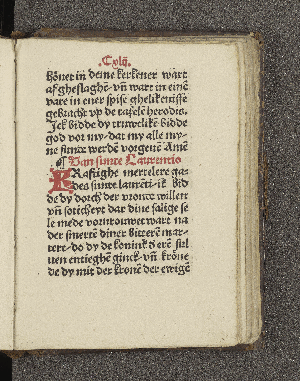 Cxlij.
hönet in deine kerkener wart
af gheslaghē vn̄ wart in einē
vate in ener spise ghelikenisse
gebracht vp de tafelē herodis.
Ick bidde dy truwelikē bidde
god vor my dat my alle my-
ne sunte werdē vorgeuē Amē
¶ Van sunte Laurentio
KRaftighe mertelere ga-
des sunte laurēti ik bid
de dy dorch der vronte willen
vn̄ soticheyt dar dine salige se
le mede vorvrouwet wart na
der smerte diner bitterē mar-
ter do dy de konink d' erē sul
uen entieghē ginck vn̄ kröne
de dy mit der kronē der ewigē